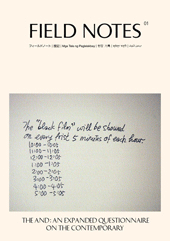 FIELD NOTES
01
The "blank film" will be showed
on every first 5 minutes of each hour.
10:00 - 10:05
11:00 - 11:05
12:00 - 12:05
1:00 - 1:05
2:00 - 2:05
3:00 - 3:05
4:00 - 4:05
5:00 - 5:05
THE AND: AN EXPANDED QUESTIONNAIRE
ON THE CONTEMPORARY